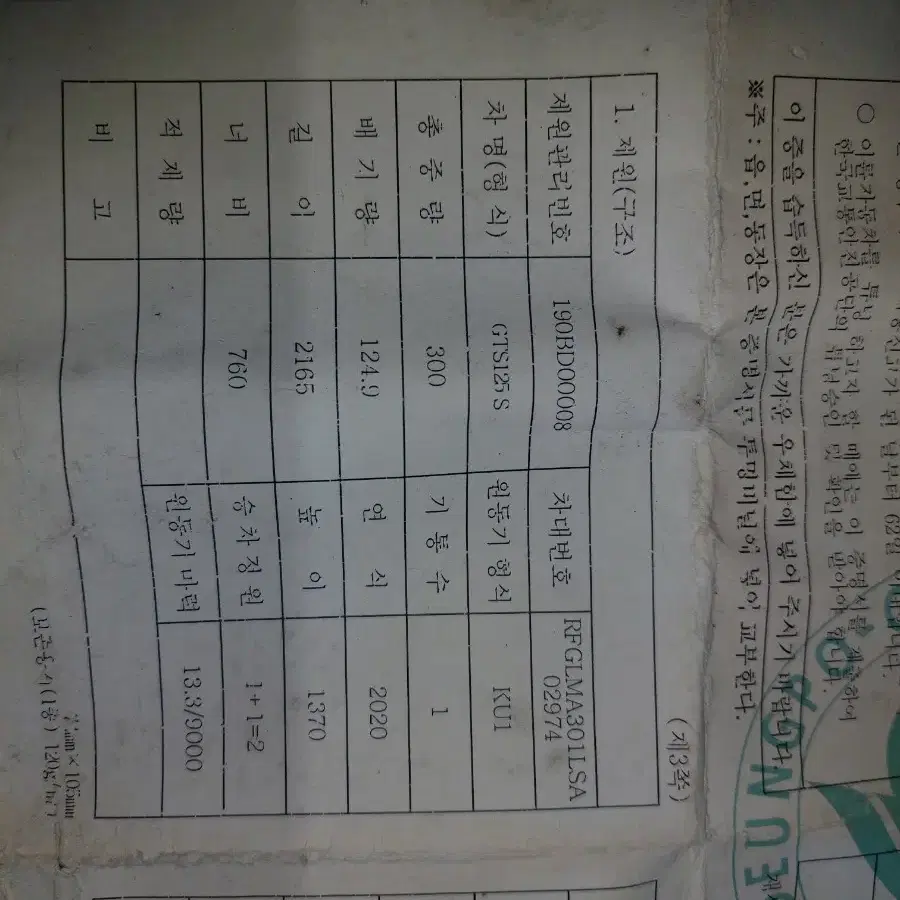 이륜자동차를 튜닝 하고자 할 때에는 이 증명서를 제출하여
한국교통안전공단의 튜닝승인 및 확인을 받아야 합니다.
이 증을 습득하신 분은 가까운 우체함에 넣어 주시기 바랍니다.
※주 : 읍,면,동장은 본 증명서를 투명비닐에 넣어 교부한다.
(제3쪽)
1. 제원(구조)
제원관리번호 190BD00008 차대번호 RFGLMA301LSA
02974
차 명(형 식) GTS125S 원동기 형식 KU1
총 중 량 300 기 통 수 1
배 기 량 124.9 연 식 2020
길 이 2165 높 이 1370
너 비 760 승 차 정 원 1+1=2
적 재 량 원동기 마력 13.3/9000
비 고
105mm
(보존용지(1종) 120g/㎡)